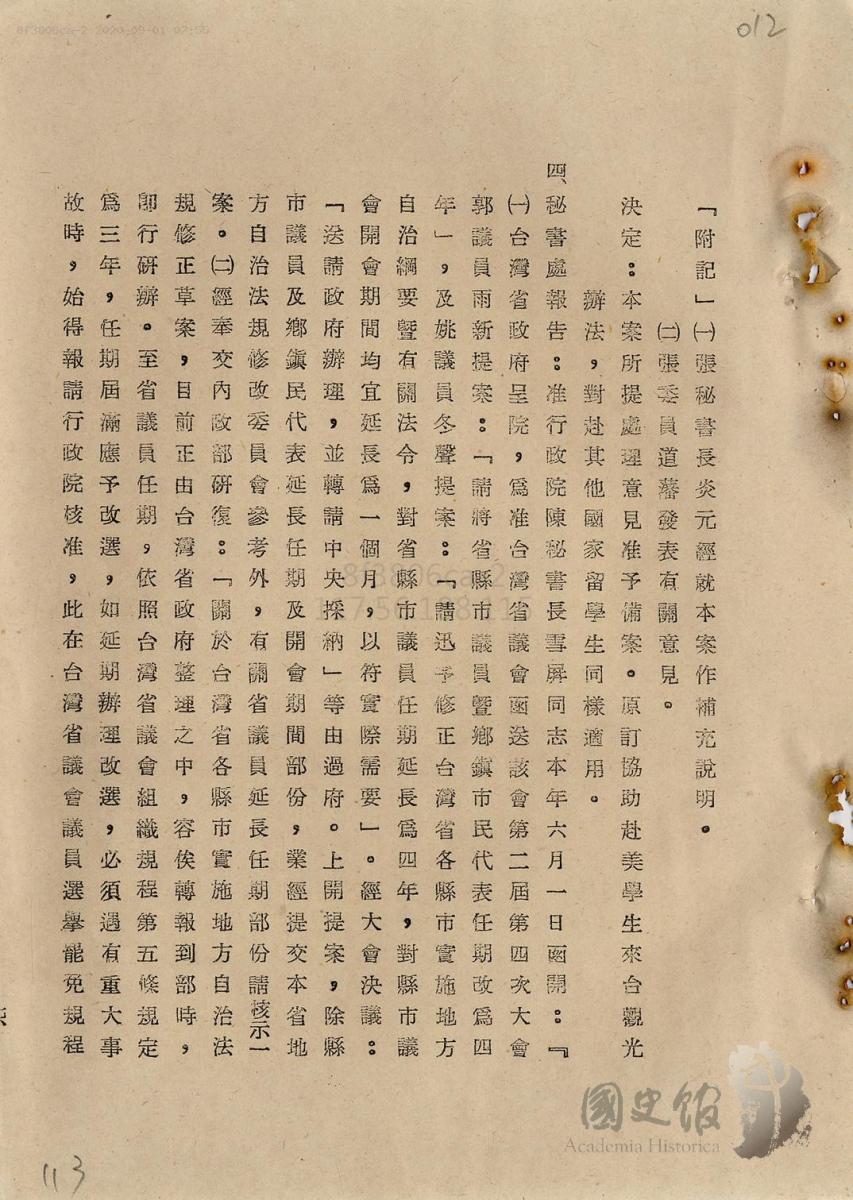 8f3806ca-2 2020-09-01 07:55
012
『附記」㈠張秘書長炎元經就本案作補充說明。
㈡張委員道藩發表有關意見。
決定：本案所提處理意見准予備案。原訂協助赴美學生來台觀光
辦法，對赴其他國家留學生同樣適用。
四、秘書處報告：准行政院陳秘書長雪屏同志本年六月一日函開：『
㈠台灣省政府呈院，爲准台灣省議會函送該會第二屆第四次大會
郭議員雨新提案：「請將省縣市議員暨鄉鎭市民代表任期改爲四
年」，及姚議員冬聲提案：「請迅予修正台灣省各縣市實施地方
自治綱要暨有關法令，對省縣市議員任期延長爲四年，對縣市議
會開會期間均宜延長爲一個月，以符實際需要」。經大會決議：
「送請政府辦理，並轉請中央採納」等由過府。上開提案，除縣
市議員及鄉鎭民代表延長任期及開會期間部份，業經提交本省地
方自治法規修改委員會參考外，有關省議員延長任期部份請核示一
案。㈡經奉交內政部研復：「關於台灣省各縣市實施地方自治法
規修正草案，目前正由台灣省政府整理之中，容俟轉報到部時，
卽行研辦。至省議員任期，依照台灣省議會組織規程第五條規定
爲三年，任期屆滿應予改選，如延期辦理改選，必須遇有重大事
故時，始得報請行政院核准，此在台灣省議會議員選舉罷免規程
113
8f3806ca-2
國史館
Academia Historica